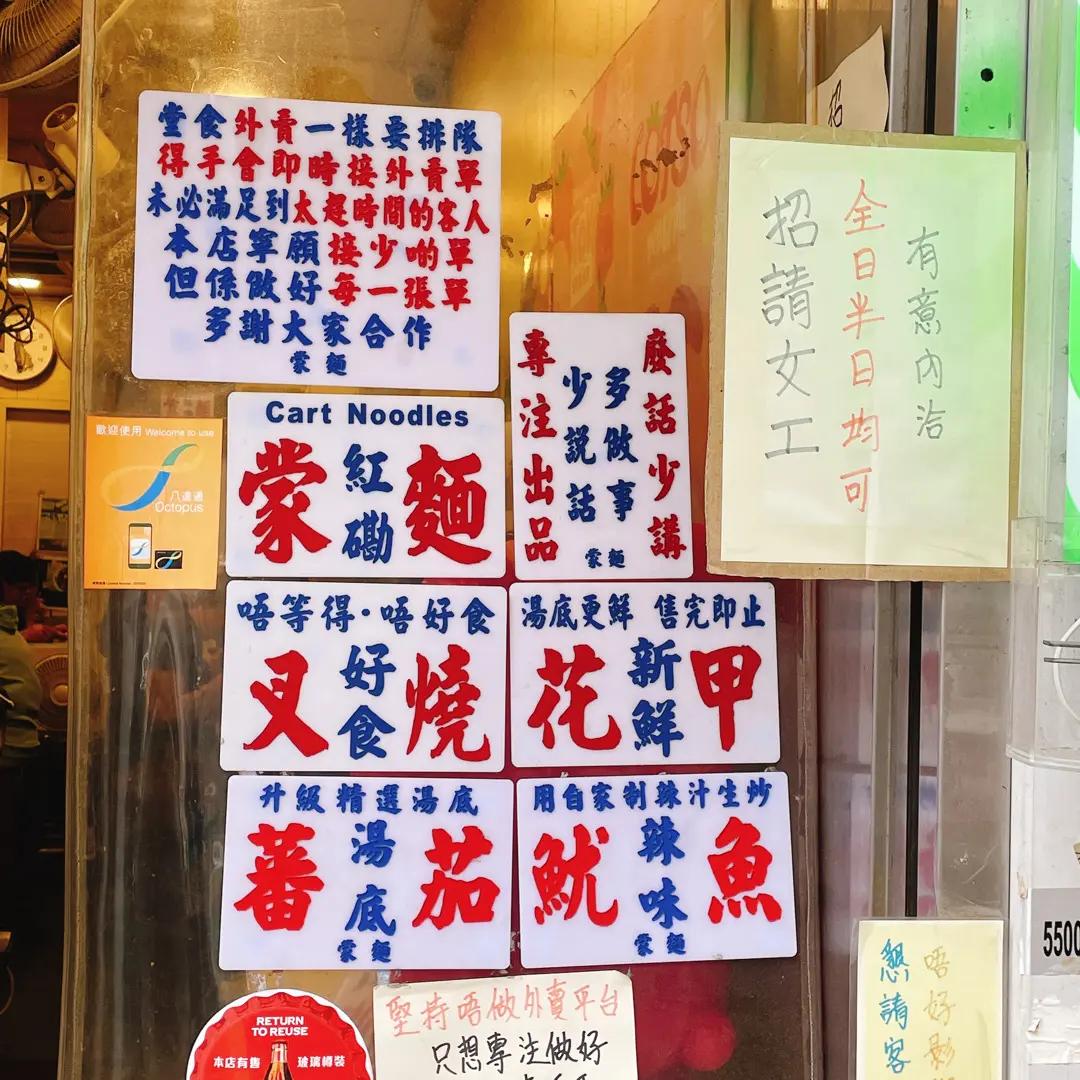 堂食外賣一樣要排隊
得手會即時接外賣單
未必滿足到太趕時間的客人
本店寧願接少啲單
但係做好每一張單
多謝大家合作
蒙麵
Cart Noodles
蒙紅磡麵
廢話少講
多做事
少說話
專注出品
蒙麵
招
有意內洽
全日半日均可
招請女工
歡迎使用 Welcome to use
八達通
Octopus
唔等得·唔好食
叉好食燒
湯底更鮮 售完即止
花新鮮甲
升級精選湯底
蕃湯底茄
蒙麵
用自家制辣汁生炒
魷辣味魚
蒙麵
5500
RETURN
TO REUSE
本店有售 玻璃樽裝
堅持唔做外賣平台
只想專注做好
唔好影
懇請客